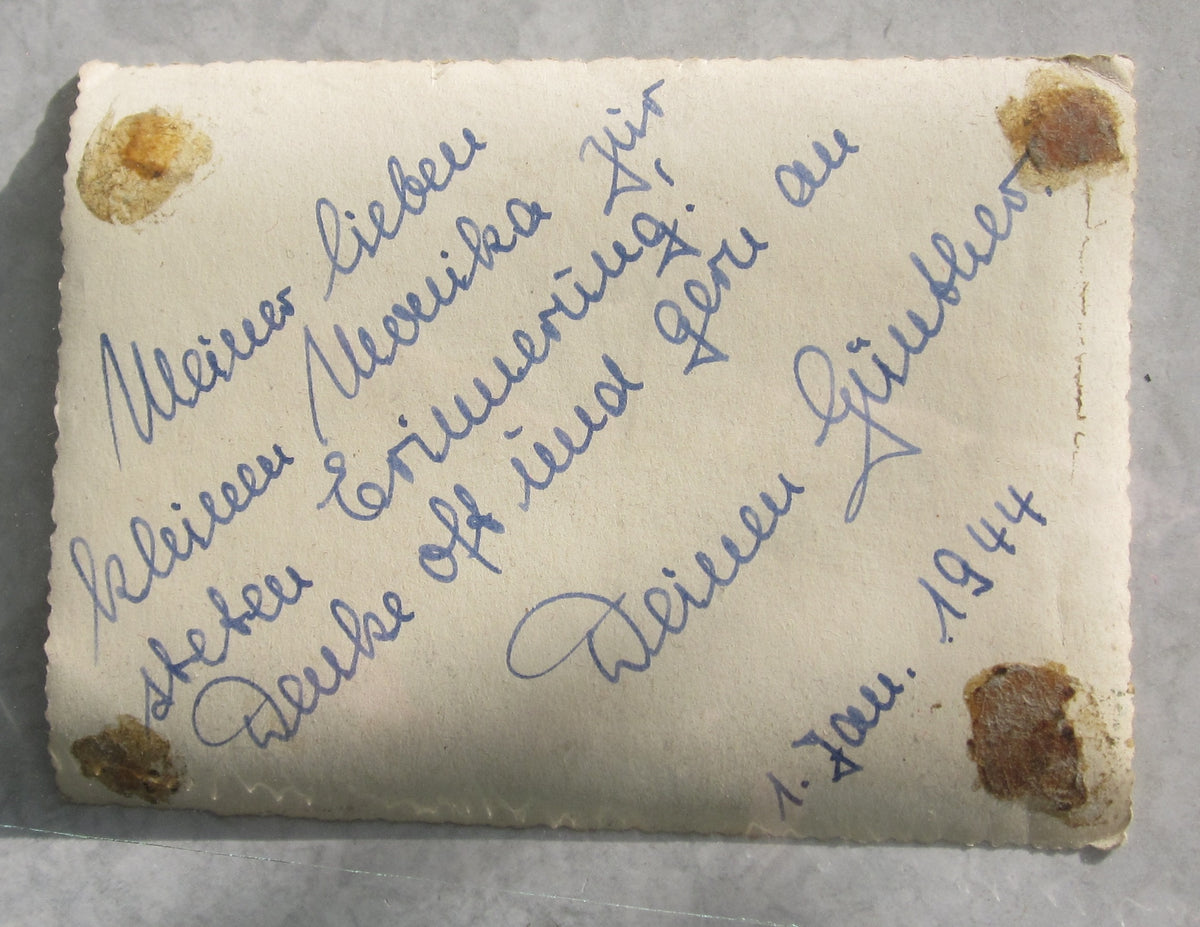 Meiner lieben
kleinen Monika zur
steten Erinnerung!
Denke oft und gern an
Deinen Günther.
1. Jan. 1944